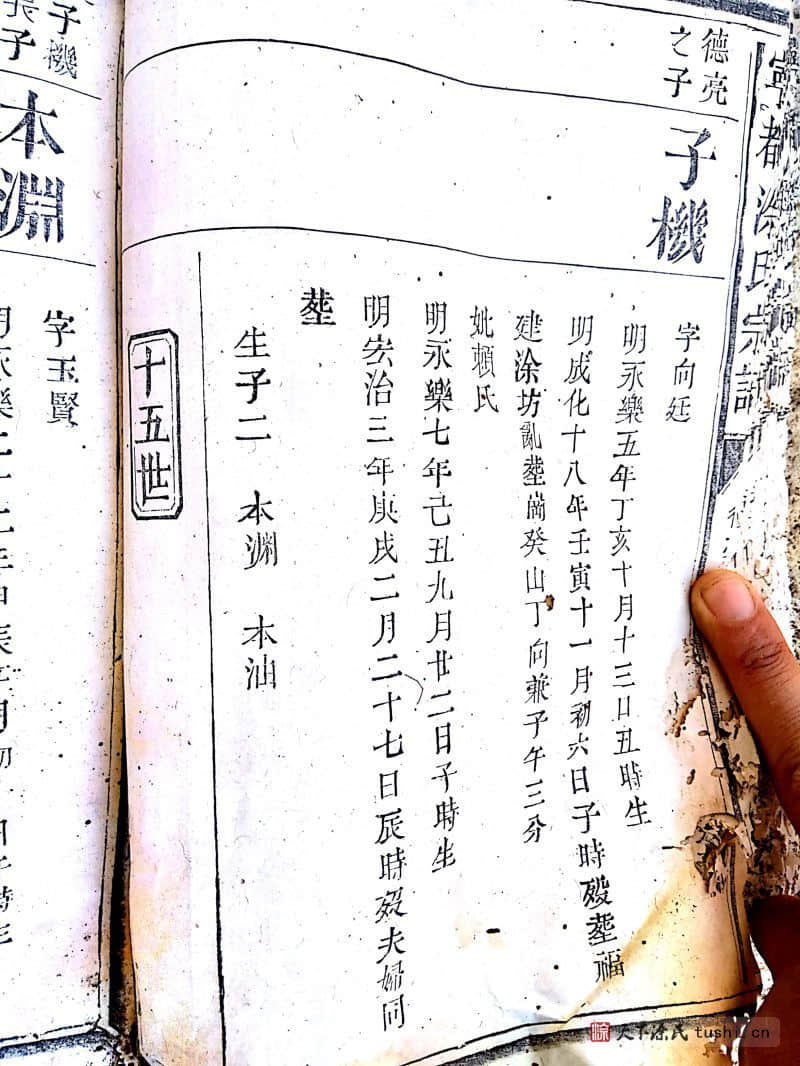 寧都涂氏宗譜
德亮
之子
子機
字向廷
明永樂五年丁亥十月十三日丑時生
明成化十八年壬寅十一月初六日子時歿塟福
建涂坊亂塟崗癸山丁向兼子午三分
妣賴氏
明永樂七年己丑九月廿二日子時生
明宏治三年庚戌二月二十七日辰時歿夫婦同
塟
生子二 本淵 本油
十五世
子機
長子
本淵
字玉賢
天下涂氏 tushi.cn